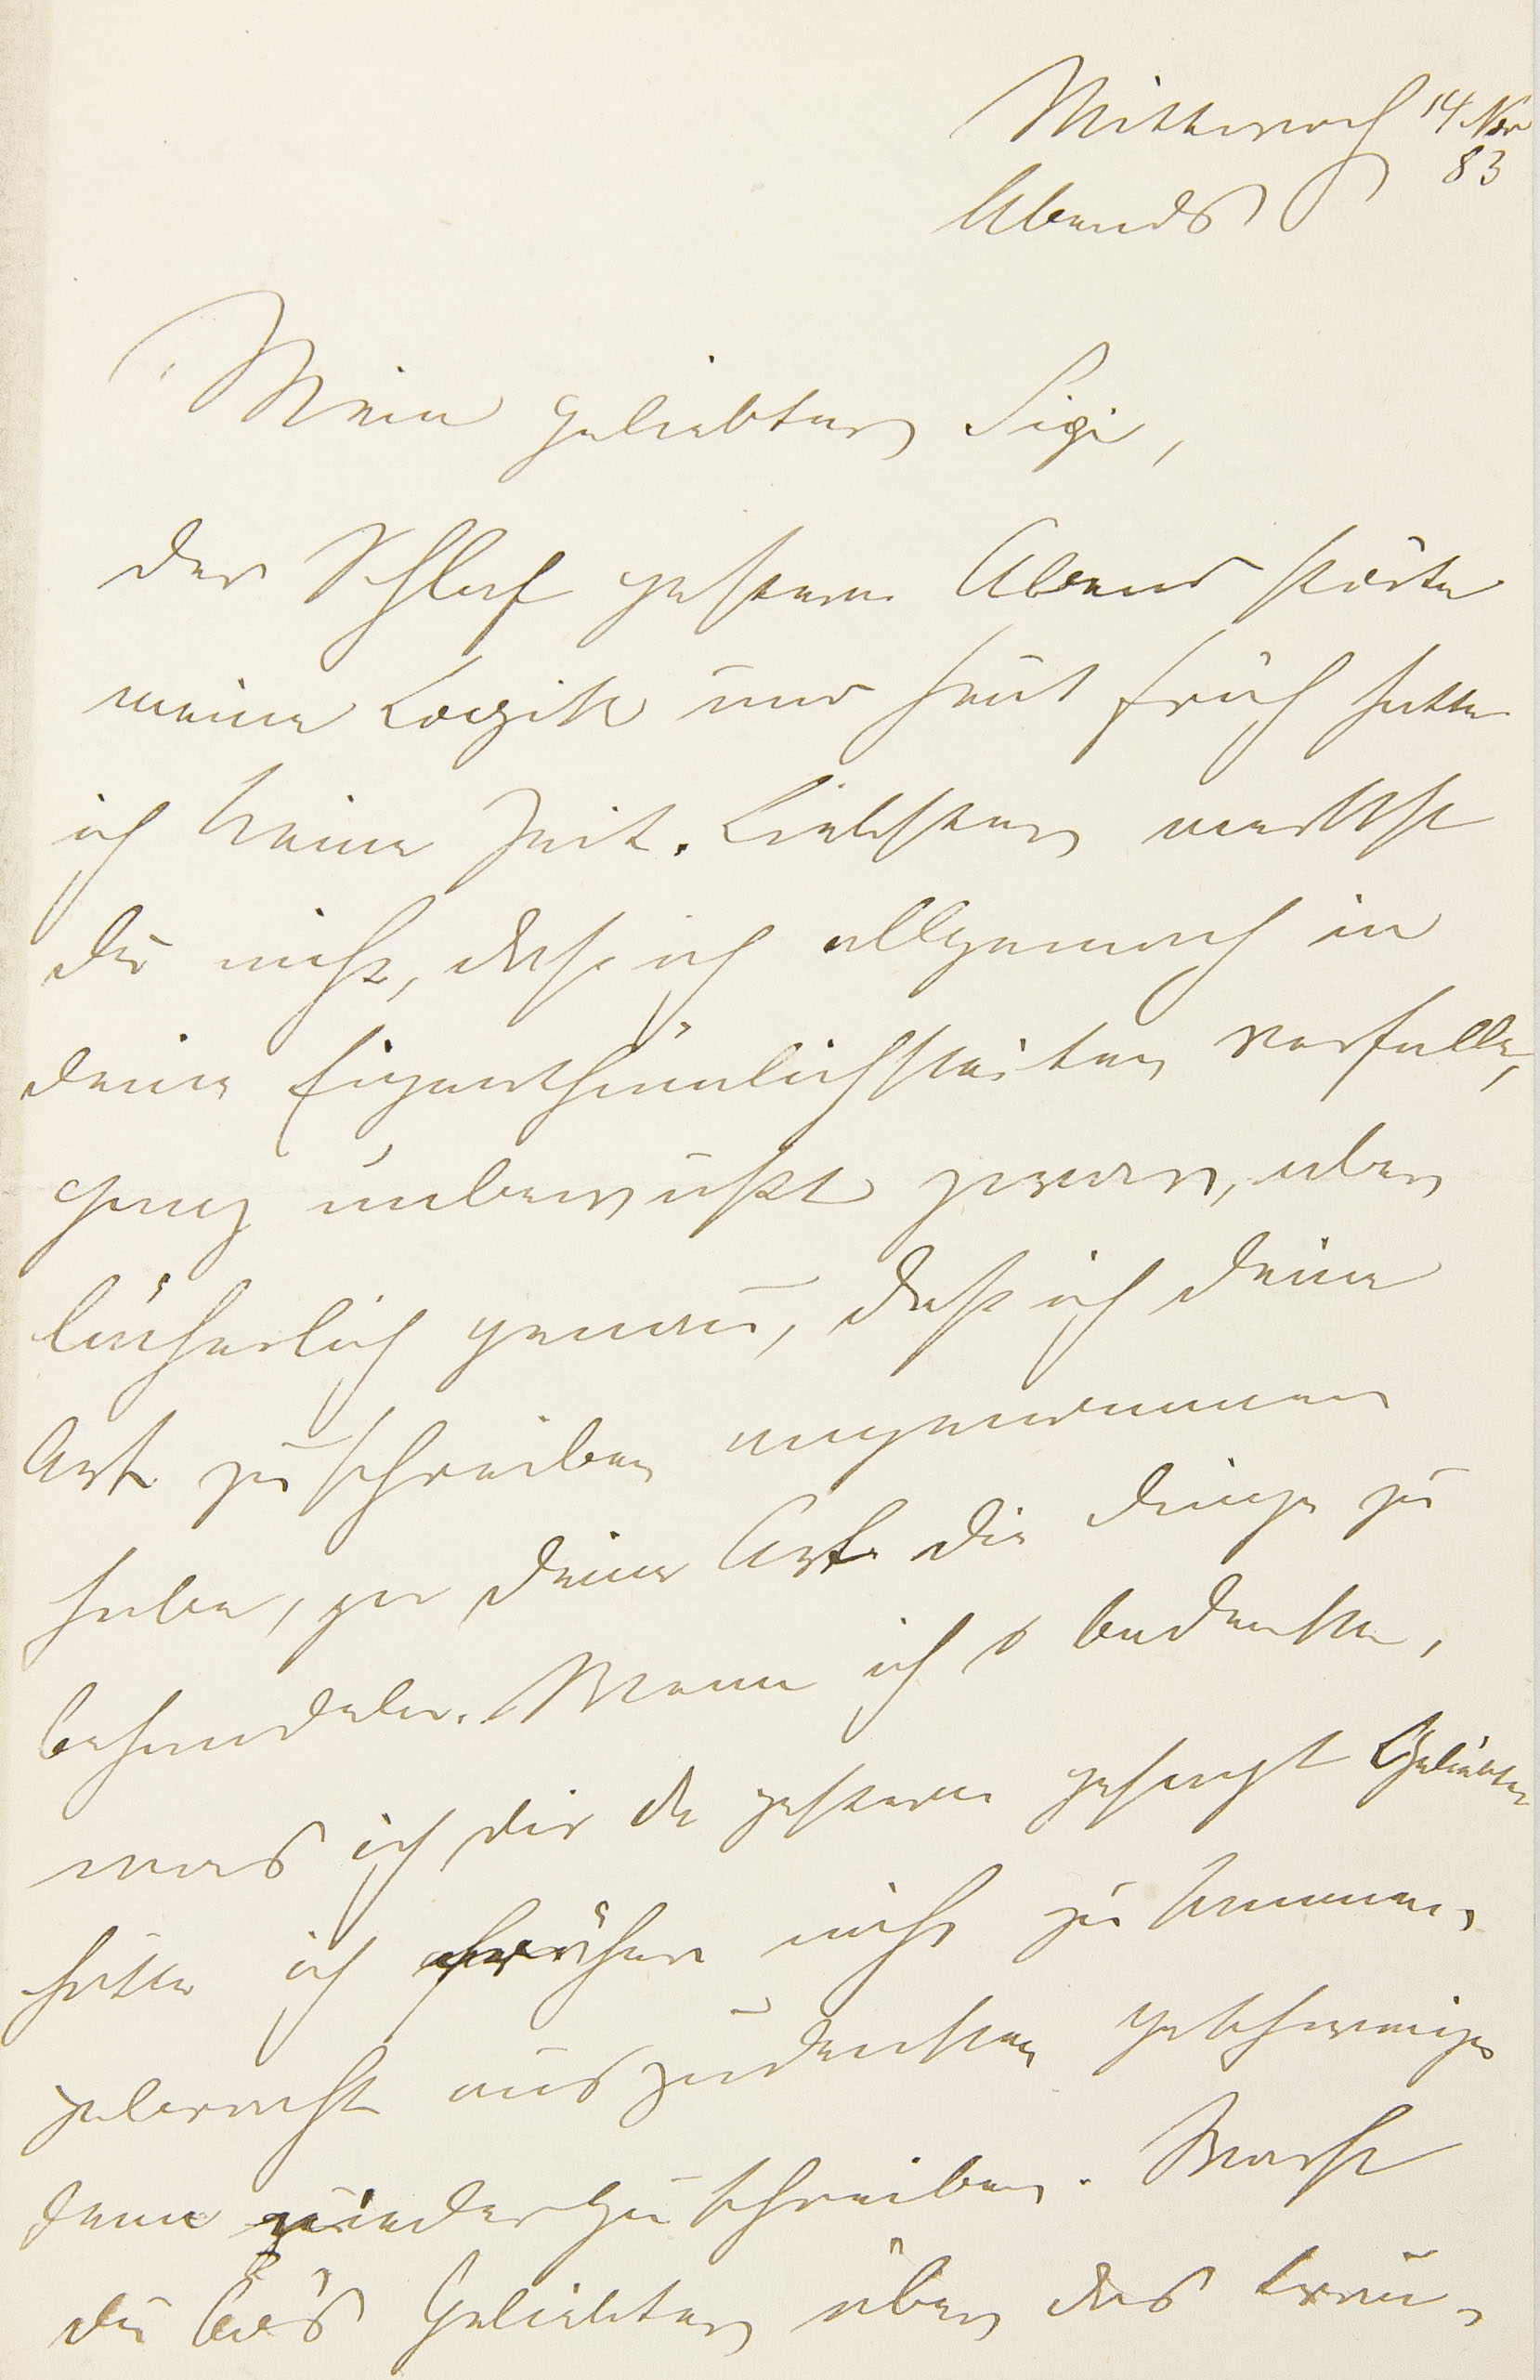 Mittwoch 14 Nov
83
Abends
Mein geliebter Sigi,
der Schlaf gestern Abend störte
meine Logik und heut früh hatte
ich keine Zeit. Liebster merkst
du nicht, daß ich allgemach in
deine Eigenthümlichkeiten verfalle,
ganz unbewußt zwar, aber
lächerlich genau, daß ich deine
Art zu schreiben angenommen
habe, ja deine Art die Dinge zu
behandeln. Wenn ich's bedenke,
was ich dir da gestern gesagt Geliebter
hätte ich früher nicht zu Stande
gebracht auszudenken geschweige
denn niederzuschreiben. Warst
du bös Geliebter über das